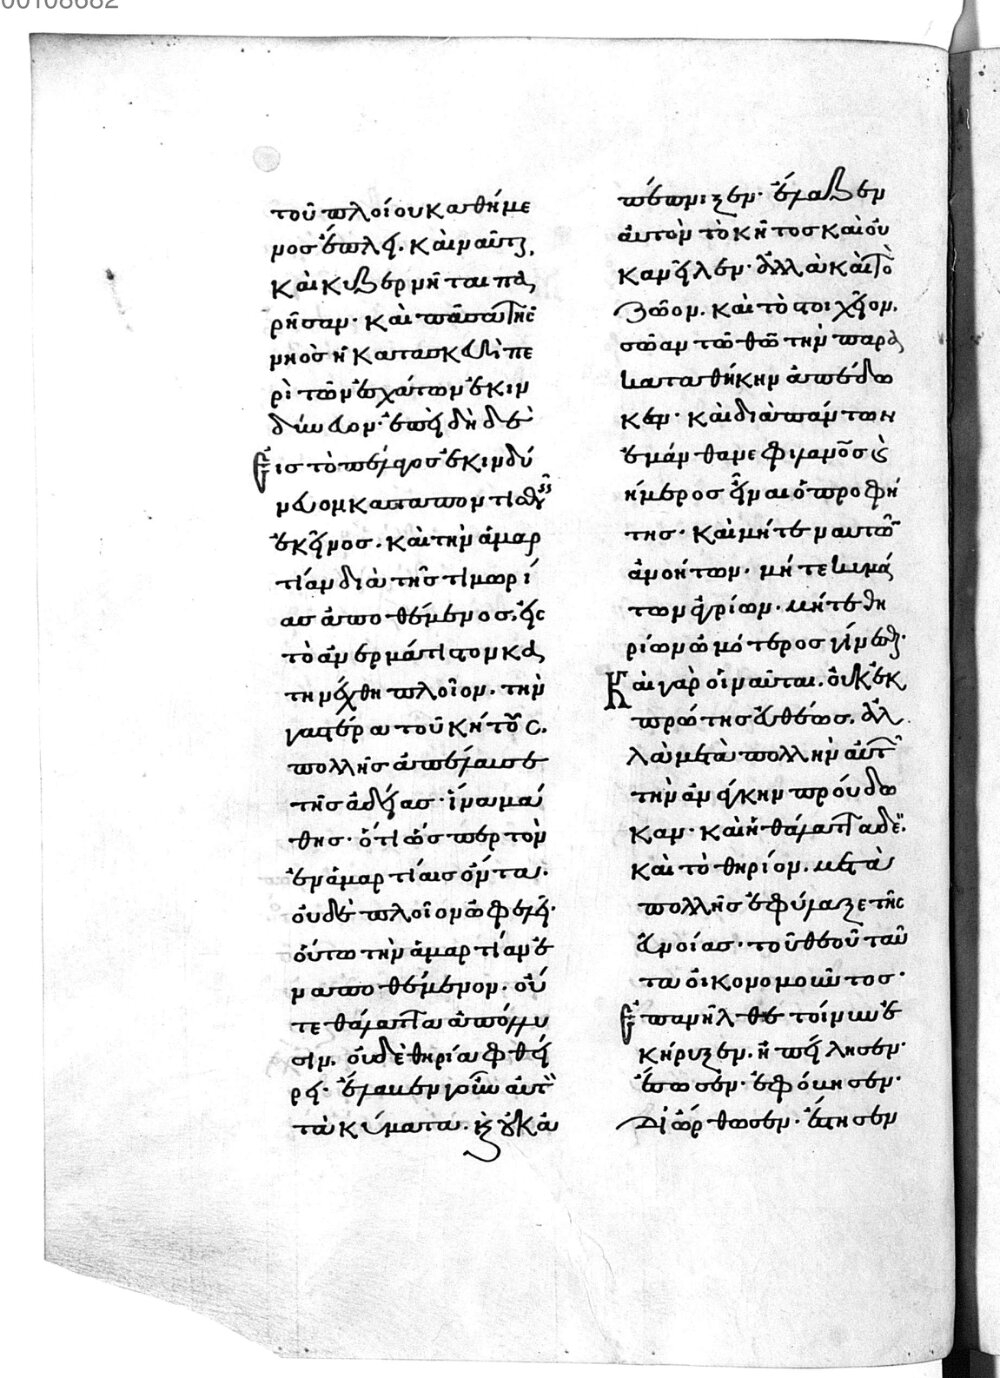 00108682
τοῦ πλοίου καθήμε
νος ἔπλει. καὶ ναῦται,
καὶ κυβερνῆται πα
ρῆσαν· καὶ πᾶσα τῆς
νηὸς ἡ κατασκευὴ· πε
ρὶ τῶν ἐσχάτων ἐκιν
δύνευον· ἐπειδὴ δὲ
εἰς τὸ πέλαγος ἐκινδύ
νευον καταποντισθῆναι
ἐκεῖνος. καὶ τὴν ἁμαρ
τίαν διὰ τῆς τιμωρί
ας ἀποθέμενος, εἰς
τὸ ἀνερμάτιστον κα
τηνέχθη πλοῖον. τὴν
γαστέρα τοῦ κήτους.
πολλῆς ἀπέλαυσε
τῆς ἀδείας· ἵνα μά
θης· ὅτι ὥσπερ τὸν
ἐν ἁμαρτίαις ὄντα·
οὐδὲ πλοῖον ὠφελεῖ·
οὕτω τὴν ἁμαρτίαν ἐ
ναποθέμενον. οὔ
τε θάλαττα ἀπόλλυ
σιν. οὐδὲ θηρία φθεί
ρει· ἔλαβεν γοῦν αὐτὸν
τὰ κύματα. ἀλλ' οὐκ ἀ
πέπνιξεν· ἔλαβεν
αὐτὸν τὸ κῆτος καὶ οὐ
κ ἀνεῖλεν· ἀλλὰ καὶ τὸ
ζῶον. καὶ τὸ στοιχεῖον.
σῶαν τῶ θῶ τὴν παρα
καταθήκην ἀπέδω
κεν· καὶ διὰ πάντων
ἐμάνθανε φιλανος κ(αὶ)
ἥμερος εἶναι ὁ προφή
της· καὶ μήτε ναυτῶν
ἀνοήτων. μήτε κυμά
των ἀγρίων. μήτε θη
ρίων ὠμότερος γίνεσθαι·
Καὶ γὰρ οἱ ναῦται. οὐκ ἐκ
πρώτης εὐθέως. ἀλ
λὰ μετὰ πολλὴν αὐτὸν
τὴν ἀνάγκην προύδω
καν· καὶ ἡ θάλαττα δέ.
καὶ τὸ θηρίον. μετὰ
πολλῆς ἐφύλαξε τῆς
εὐνοίας· τοῦ θεοῦ ταῦ
τα οἰκονομοῦντος·
ἐπανῆλθε τοίνυν ἐ
κήρυξεν. ἠπείλησεν·
ἔπεισεν· ἐφόβησεν·
διώρθωσεν. ἔστησεν